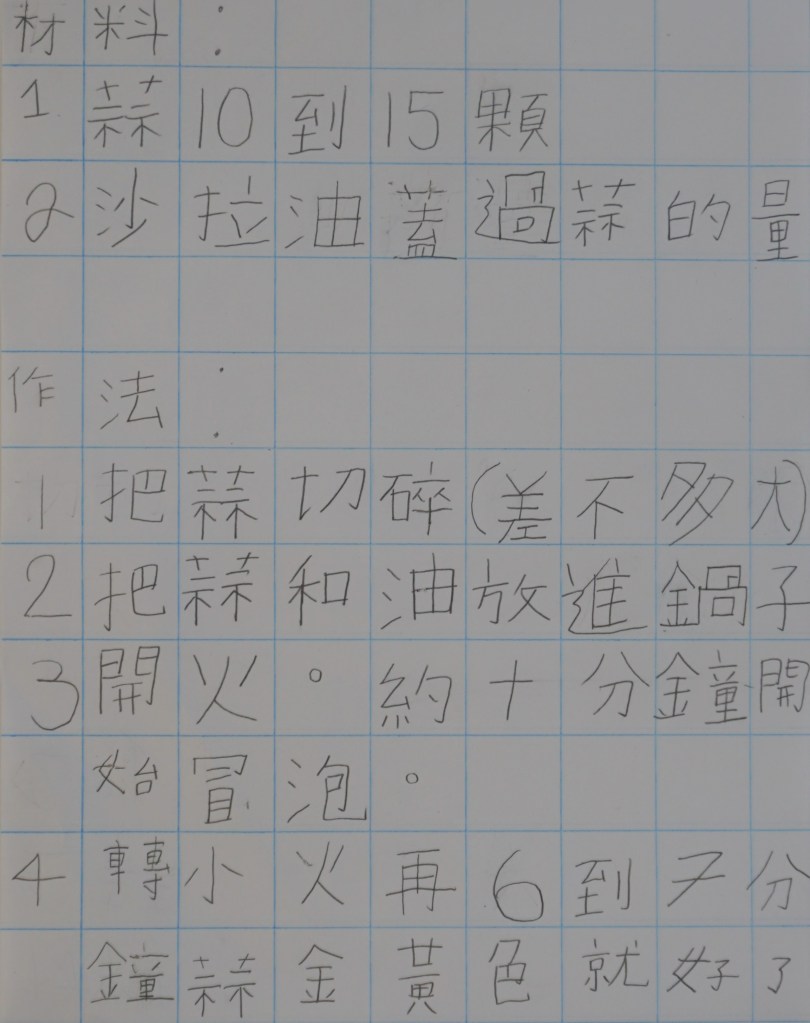 材料：
1 蒜10到15顆
2 沙拉油蓋過蒜的量
作法：
1 把蒜切碎(差不多大)
2 把蒜和油放進鍋子
3 開火。約十分鐘開
始冒泡。
4 轉小火再6到7分
鐘蒜金黃色就好了